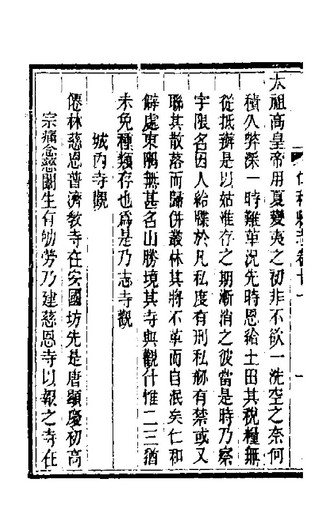 太祖高皇帝用夏變夷之初非不欲一洗空之奈何
積久弊深一時難革況先時恩給土田其稅糧無
從抵辦是以姑惟存之期漸消之彼當是時乃察
宇限名因人給牒於凡私度有刑私剏有禁或又
聯其散落而歸併叢林其將不革而自泯矣仁和
僻處東隅無甚名山勝境其寺與觀什惟二三猶
未免種類存也為是乃志寺觀
城內寺觀
僊林慈恩普濟教寺在安國坊先是唐顯慶初高
宗痛念愍閔生有劬勞乃建慈恩寺以報之寺在